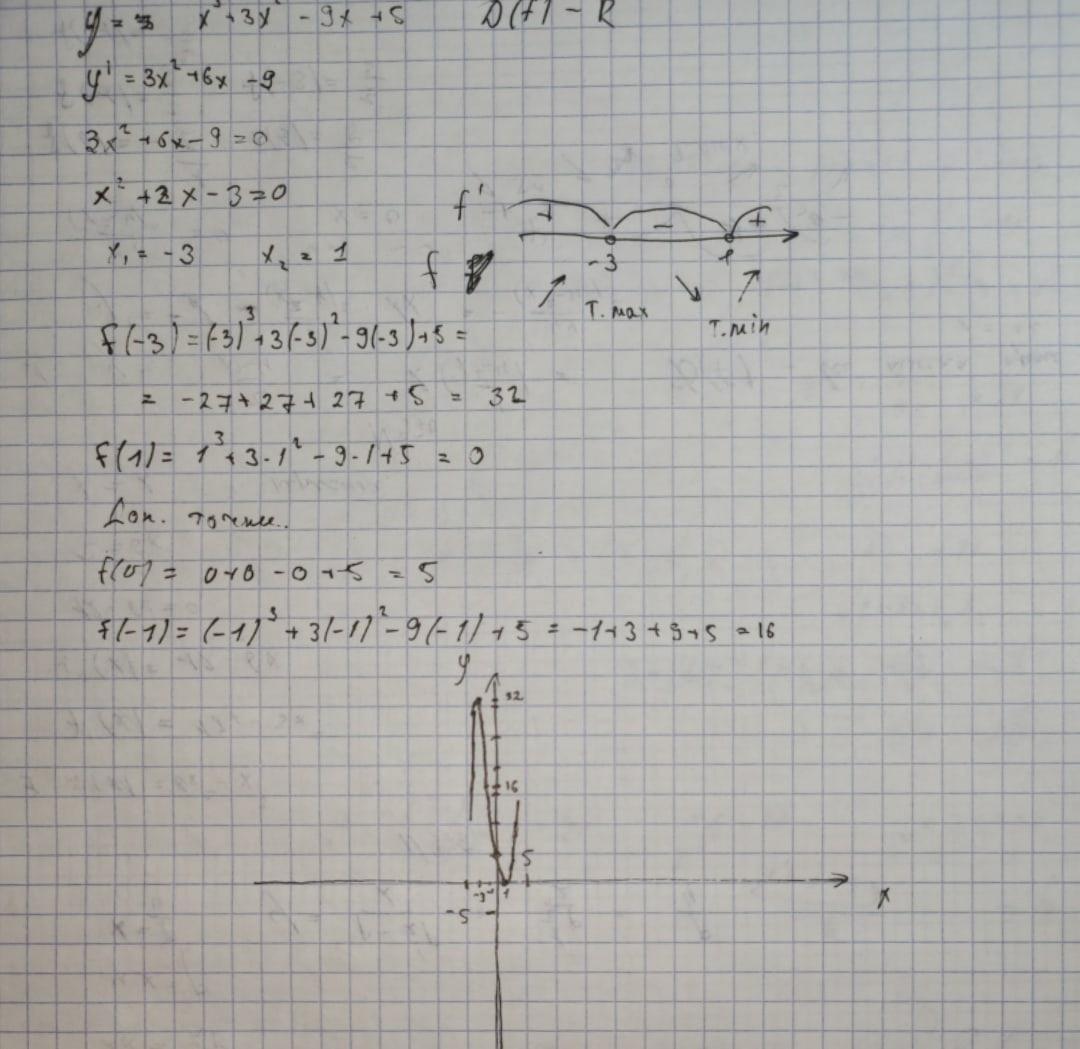 y = x³ + 3x² - 9x + 5 D(f) - R
y' = 3x² + 6x - 9
3x² + 6x - 9 = 0
x² + 2x - 3 = 0
x₁ = -3 x₂ = 1
f' + - +
-3 1
f
т. max т. min
f(-3) = (-3)³ + 3(-3)² - 9(-3) + 5 =
= -27 + 27 + 27 + 5 = 32
f(1) = 1³ + 3·1² - 9·1 + 5 = 0
Доп. точки.
f(0) = 0+0 - 0 + 5 = 5
f(-1) = (-1)³ + 3(-1)² - 9(-1) + 5 = -1 + 3 + 9 + 5 = 16
y
32
16
5
-3 1
-5
x